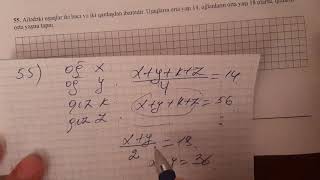 55. Ailədəki uşaqlar iki bacı və iki qardaşdan ibarətdir. Uşaqların orta yaşı 14, oğlanların orta yaşı 18 olarsa, qızların
orta yaşını tapın.
55) oğ x x+y+k+z/4 = 14
oğ y.
qız k x+y+k+z = 56
qız z.
x+y/2 = 18.
x+y = 36